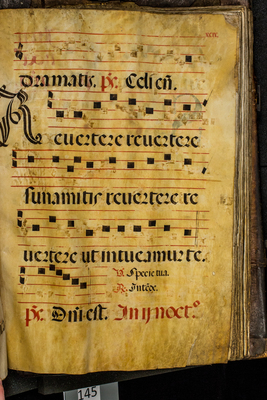 dramatis. ps. Celi en̄.
Reuertere reuertere
sunamitis reuertere re
uertere ut intueamur te.
℣. Specie tua.
℟. Intēde.
ps. Dn̄i est. In ij noct.º
145